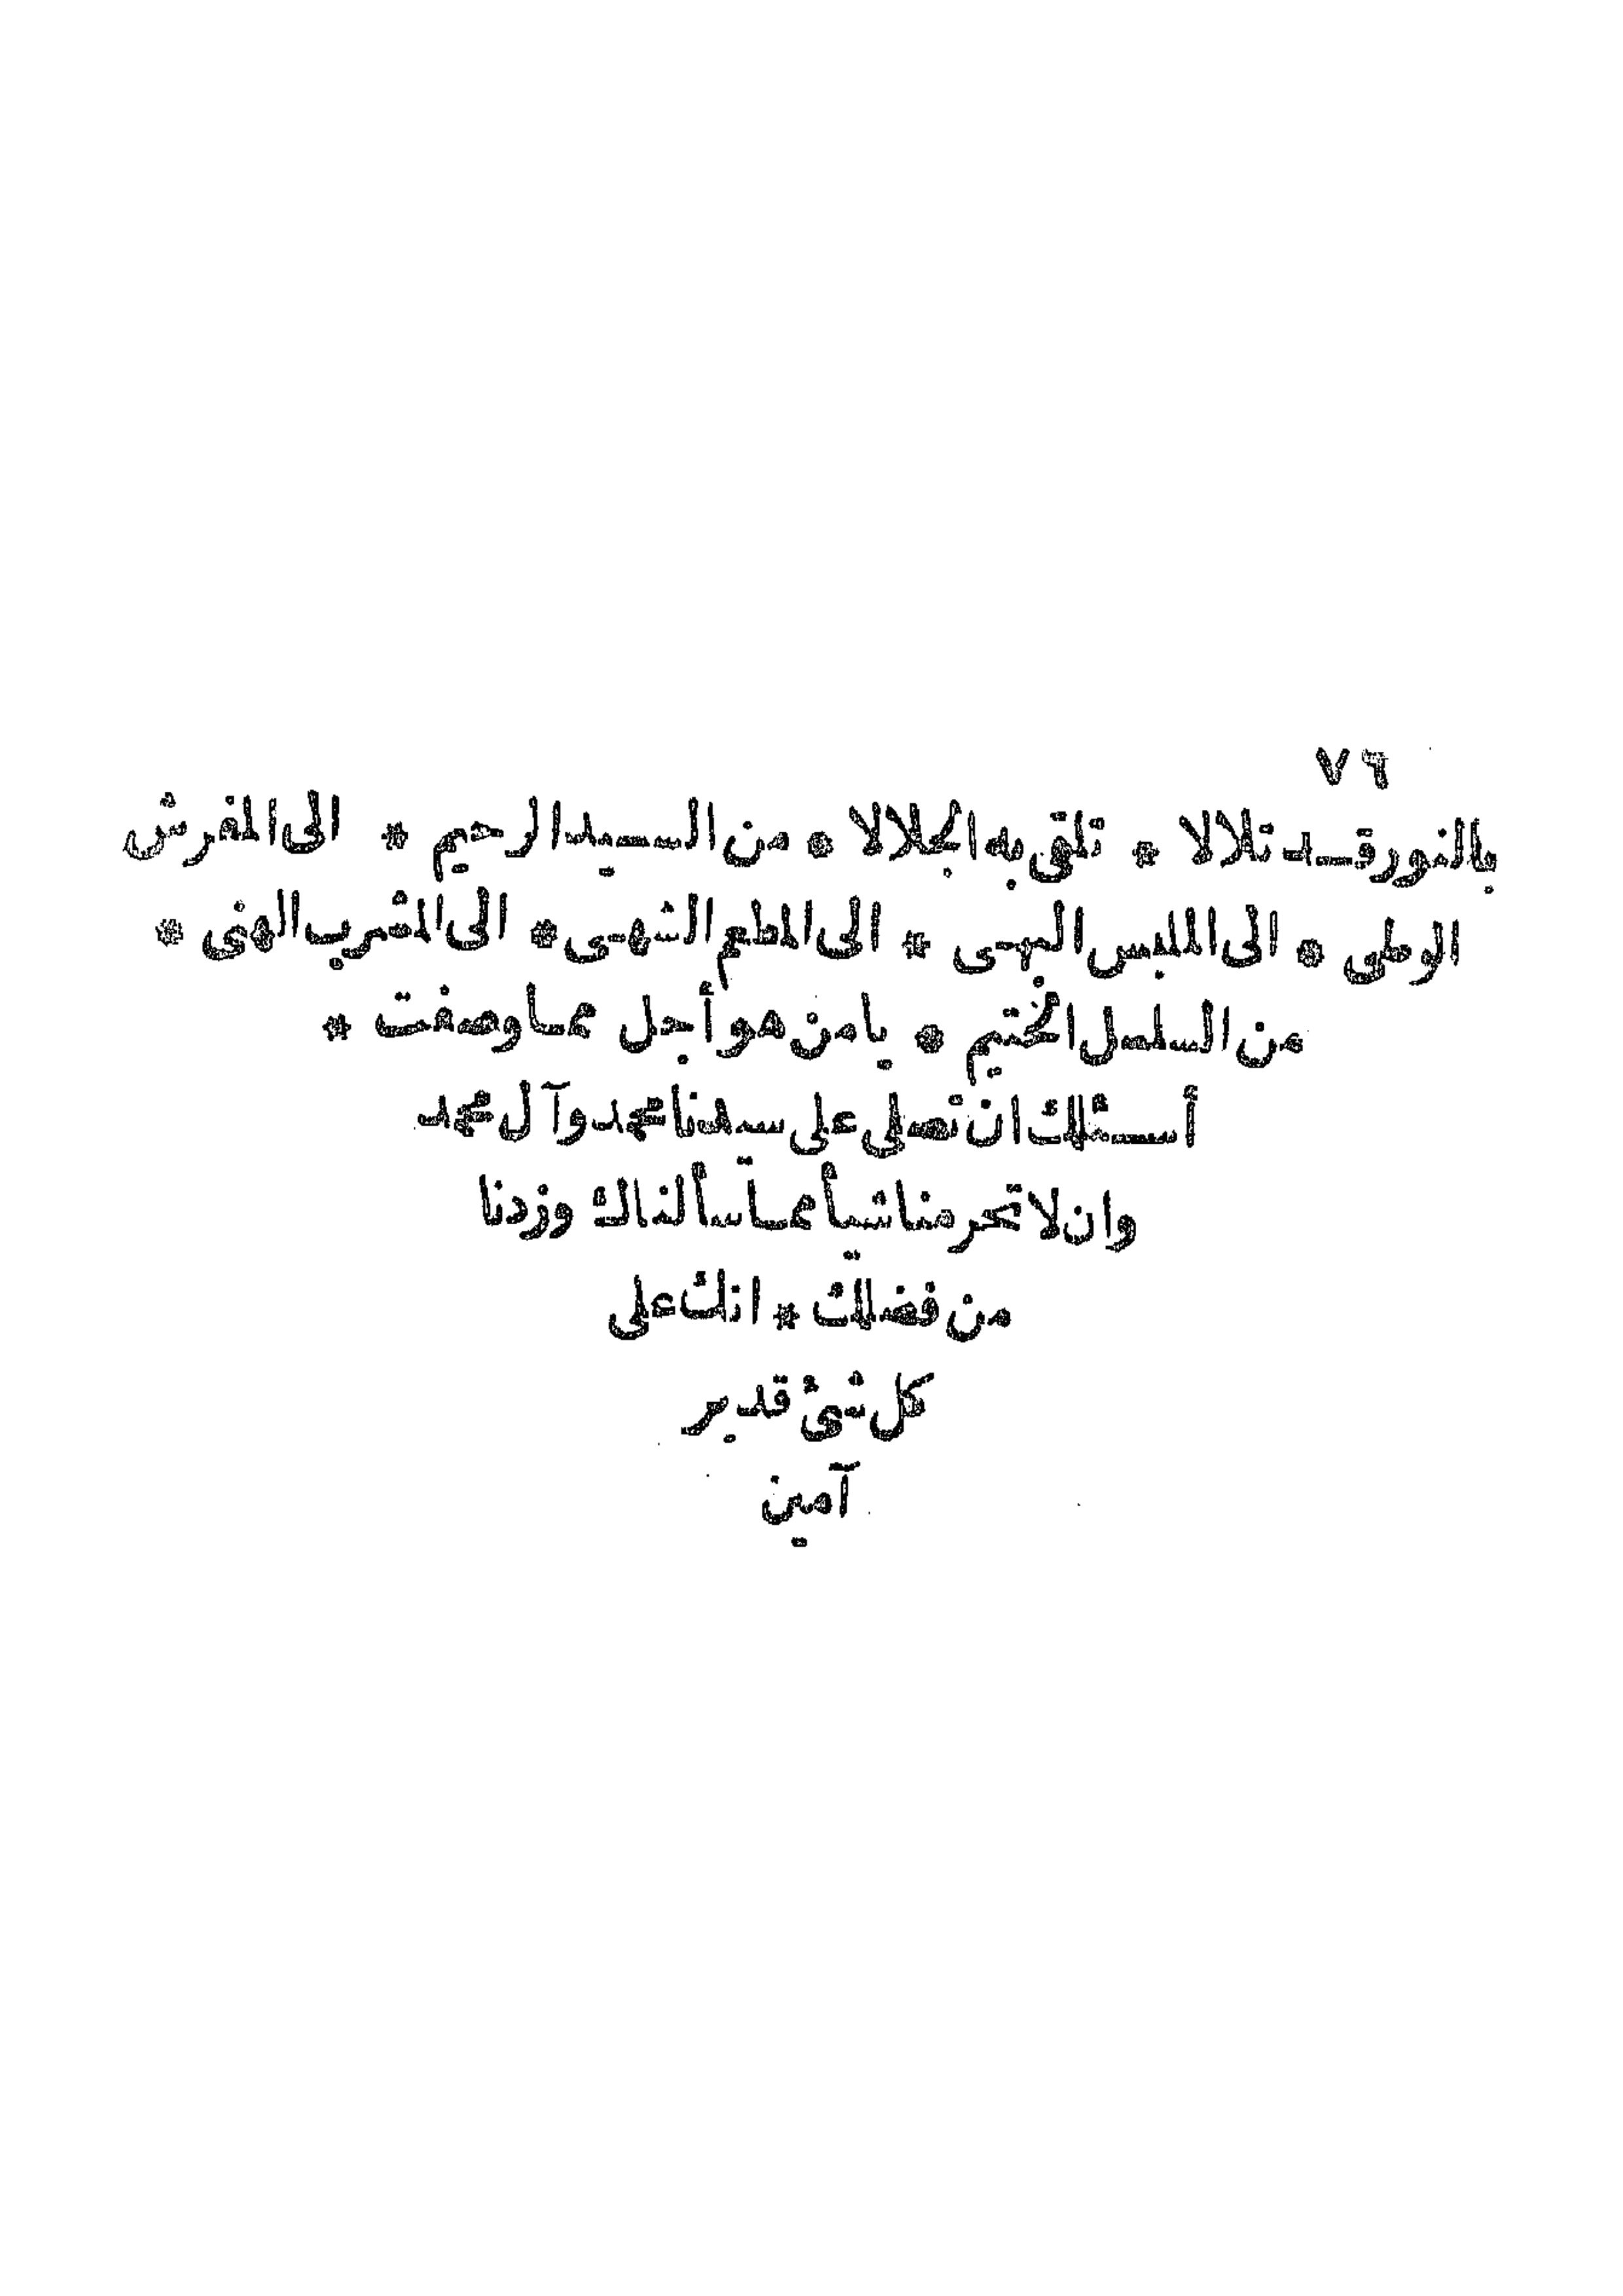 ٧٦
بالنور قد تلالا * تلقى به الجلالا * من السيد الرحيم * الى المفرش
الوطى * الى الملبس البهى * الى المطعم الشهى * الى المشرب الهنى *
من السلسل الختيم * يا من هو أجل مما وصفت *
أسئلك ان تصلى على سيدنا محمد وآل محمد
وان لا تحرمنا شيأ مما سألناك وزدنا
من فضلك * انك على
كل شئ قدير
آمين